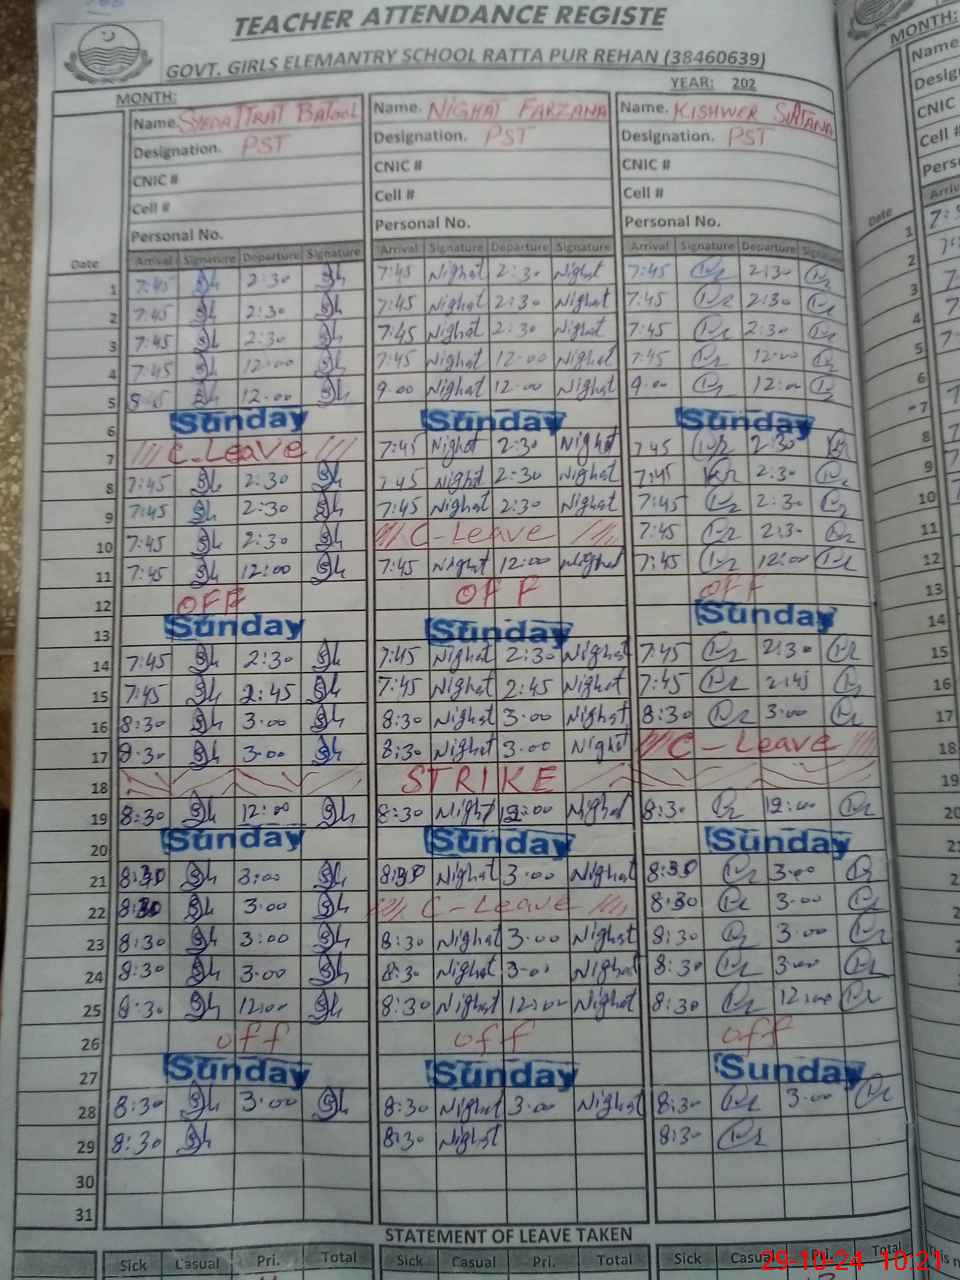 TEACHER ATTENDANCE REGISTE
GOVT. GIRLS ELEMANTRY SCHOOL RATTA PUR REHAN (38460639)
MONTH: YEAR: 202
Name. Batool Name. NIGHAT FARZANA Name. KISHWER SULTANA
Designation. PST Designation. PST Designation. PST
CNIC # CNIC # CNIC #
Cell # Cell # Cell #
Personal No. Personal No. Personal No.
Date Arrival Signature Departure Signature Arrival Signature Departure Signature Arrival Signature Departure Signature
1 7:45 2:30 7:45 Nighat 2:30 Nighat 7:45 2:30
2 7:45 2:30 7:45 Nighat 2:30 Nighat 7:45 2:30
3 7:45 2:30 7:45 Nighat 2:30 Nighat 7:45 2:30
4 7:45 12:00 7:45 Nighat 12:00 Nighat 7:45 12:00
5 12:00 9:00 Nighat 12:00 Nighat 9:00 12:00
6 Sunday Sunday Sunday
7 C-Leave 7:45 Nighat 2:30 Nighat 7:45 2:30
8 7:45 2:30 7:45 Nighat 2:30 Nighat 7:45 2:30
9 7:45 2:30 7:45 Nighat 2:30 Nighat 7:45 2:30
10 7:45 2:30 C-Leave 7:45 2:30
11 7:45 12:00 7:45 Nighat 12:00 Nighat 7:45 12:00
12 OFF OFF OFF
13 Sunday Sunday Sunday
14 7:45 2:30 7:45 Nighat 2:30 Nighat 7:45 2:30
15 7:45 2:45 7:45 Nighat 2:45 Nighat 7:45 2:45
16 8:30 3:00 8:30 Nighat 3:00 Nighat 8:30 3:00
17 8:30 3:00 8:30 Nighat 3:00 Nighat C-Leave
18 STRIKE
19 8:30 12:00 8:30 Nighat 12:00 Nighat 8:30 12:00
20 Sunday Sunday Sunday
21 8:30 3:00 8:30 Nighat 3:00 Nighat 8:30 3:00
22 8:30 3:00 C-Leave 8:30 3:00
23 8:30 3:00 8:30 Nighat 3:00 Nighat 8:30 3:00
24 8:30 3:00 8:30 Nighat 3:00 Nighat 8:30 3:00
25 8:30 12:00 8:30 Nighat 12:00 Nighat 8:30 12:00
26 off off off
27 Sunday Sunday Sunday
28 8:30 3:00 8:30 Nighat 3:00 Nighat 8:30 3:00
29 8:30 8:30 Nighat 8:30
30
31
STATEMENT OF LEAVE TAKEN
Sick Casual Pri. Total Sick Casual Pri. Total Sick Casual Pri. Total
29-10-24 10:21
MONTH:
Name.
CNIC
Cell #
Date
1
2
3
4
5
6
7
8
9
10
11
12
13
14
15
16
17
18
19